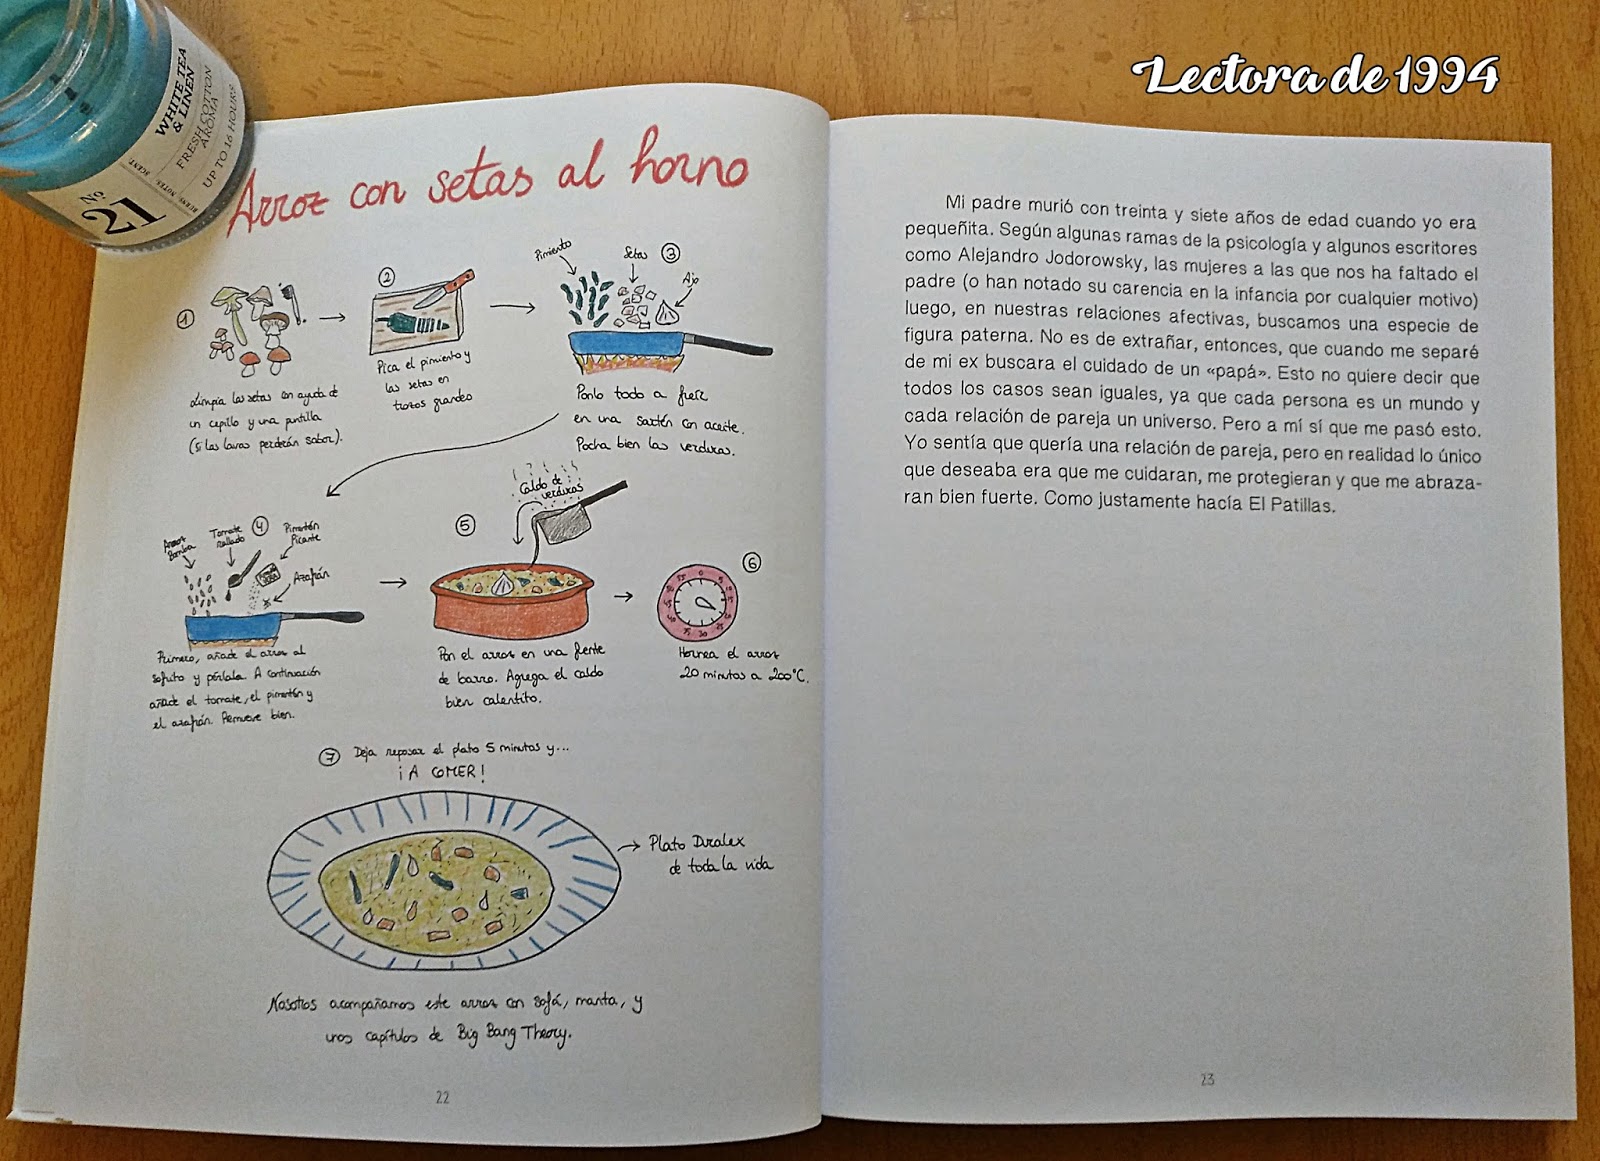 Lectora de 1994
WHITE TEA
& LINEN
SCENT:
FRESH COTTON
AROMA
NOTES:
UP TO 16 HOURS
BURNS:
No.
21
Arroz con setas al horno
1
Limpia las setas con ayuda de
un cepillo y una puntilla
(si las lavas perderán sabor).
2
Pica el pimiento y
las setas en
trozos grandes
Pimiento
Setas
3
Ajo
Ponlo todo a freír
en una sartén con aceite.
Pocha bien las verduras.
Arroz
Bomba
Tomate
rallado
4
Pimentón
Picante
Azafrán
Primero, añade el arroz al
sofrito y pérlala. A continuación
añade el tomate, el pimentón y
el azafrán. Remueve bien.
5
Caldo de
verduras
Pon el arroz en una fuente
de barro. Agrega el caldo
bien calentito.
6
Hornea el arroz
20 minutos a 200°C.
7 Deja reposar el plato 5 minutos y...
¡A COMER!
Plato Duralex
de toda la vida
Nosotros acompañamos este arroz con sofá, manta, y
unos capítulos de Big Bang Theory.
22
Mi padre murió con treinta y siete años de edad cuando yo era
pequeñita. Según algunas ramas de la psicología y algunos escritores
como Alejandro Jodorowsky, las mujeres a las que nos ha faltado el
padre (o han notado su carencia en la infancia por cualquier motivo)
luego, en nuestras relaciones afectivas, buscamos una especie de
figura paterna. No es de extrañar, entonces, que cuando me separé
de mi ex buscara el cuidado de un «papá». Esto no quiere decir que
todos los casos sean iguales, ya que cada persona es un mundo y
cada relación de pareja un universo. Pero a mí sí que me pasó esto.
Yo sentía que quería una relación de pareja, pero en realidad lo único
que deseaba era que me cuidaran, me protegieran y que me abraza-
ran bien fuerte. Como justamente hacía El Patillas.
23